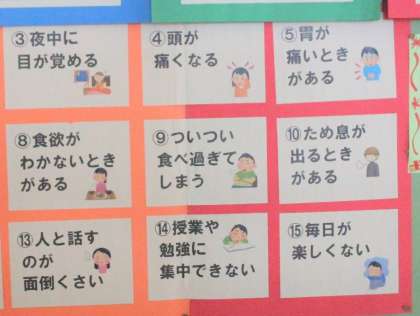 ③夜中に
目が覚める
④頭が
痛くなる
⑤胃が
痛いとき
がある
⑧食欲が
わかないとき
がある
⑨ついつい
食べ過ぎて
しまう
⑩ため息が
出るとき
がある
⑬人と話す
のが
面倒くさい
⑭授業や
勉強に
集中できない
⑮毎日が
楽しくない